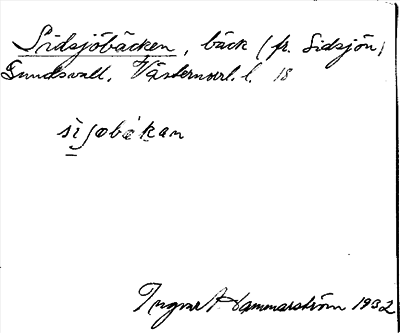 Sidsjöbäcken, bäck (fr. Sidsjön)
Sundsvall. Västernorrl. l. 18
sìjobäkan
Ingvar Hammarström 1932